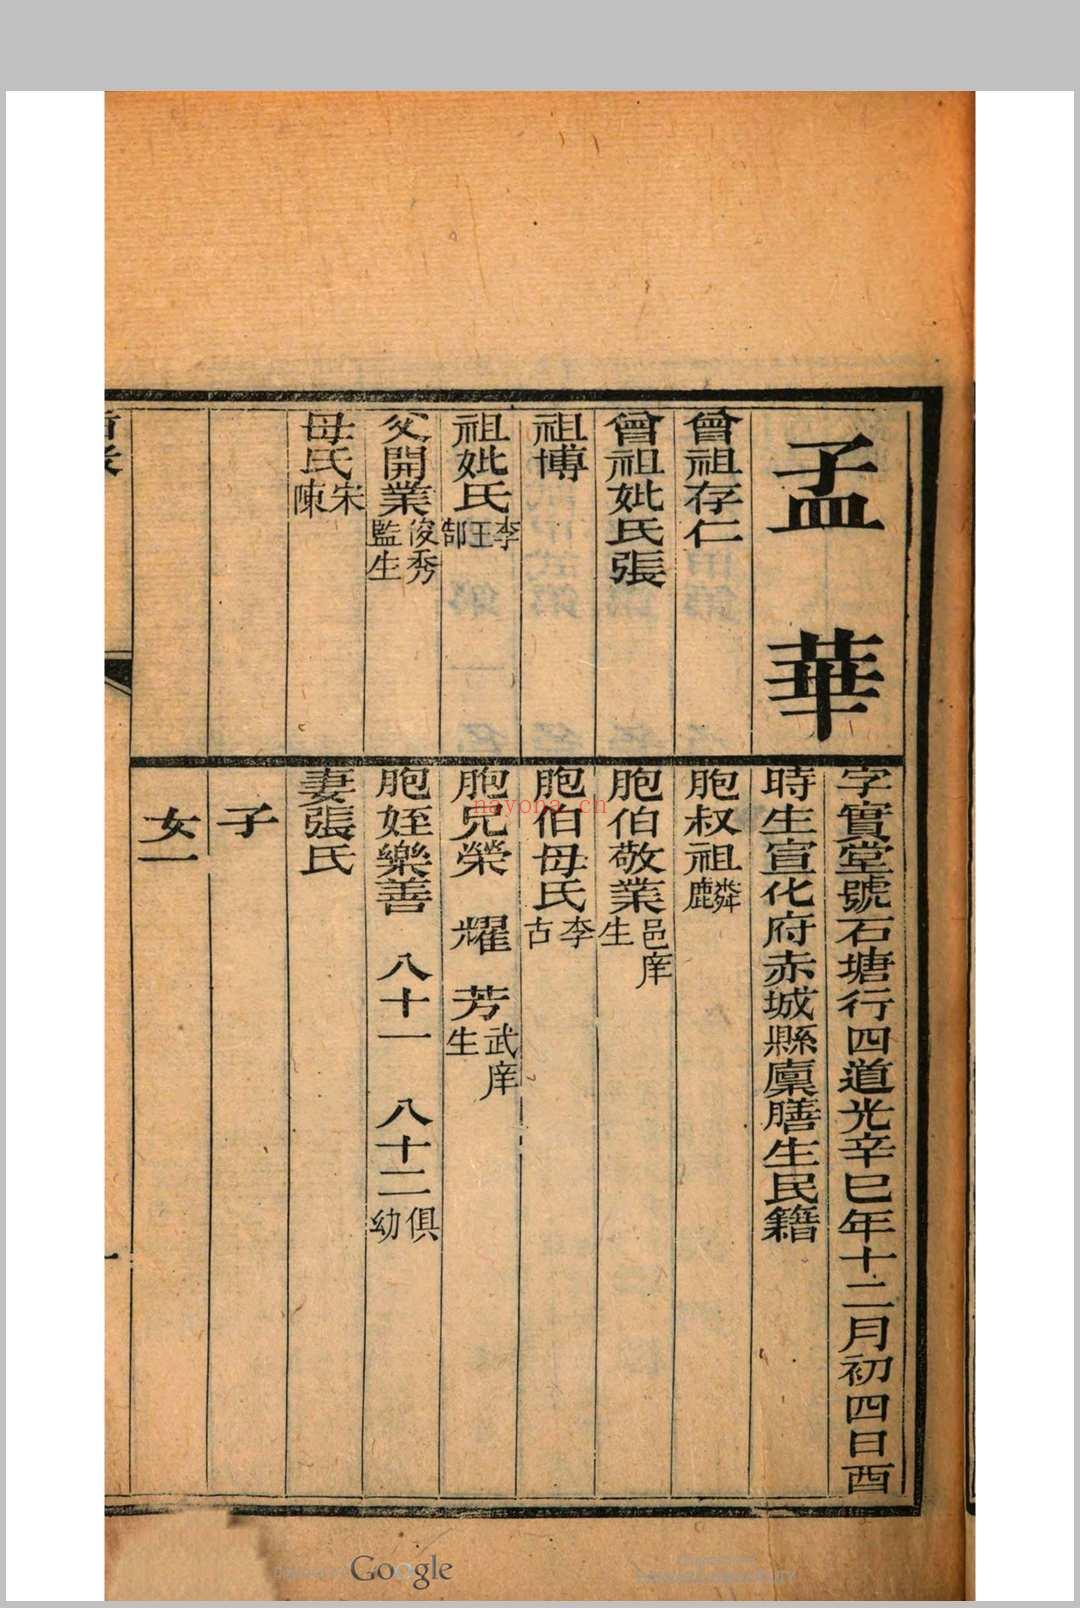 孟華
字實堂號石塘行四道光辛巳年十二月初四日酉
時生宣化府赤城縣廩膳生民籍
曾祖存仁
曾祖妣氏張
祖博
祖妣氏李王郜
父開業俊秀監生
母氏宋陳
胞叔祖麟麟
胞伯敬業邑庠生
胞伯母氏李古
胞兄榮 耀 芳武庠生
胞姪樂善 八十一 八十二俱幼
妻張氏
子
女一
nayona.cn
Google